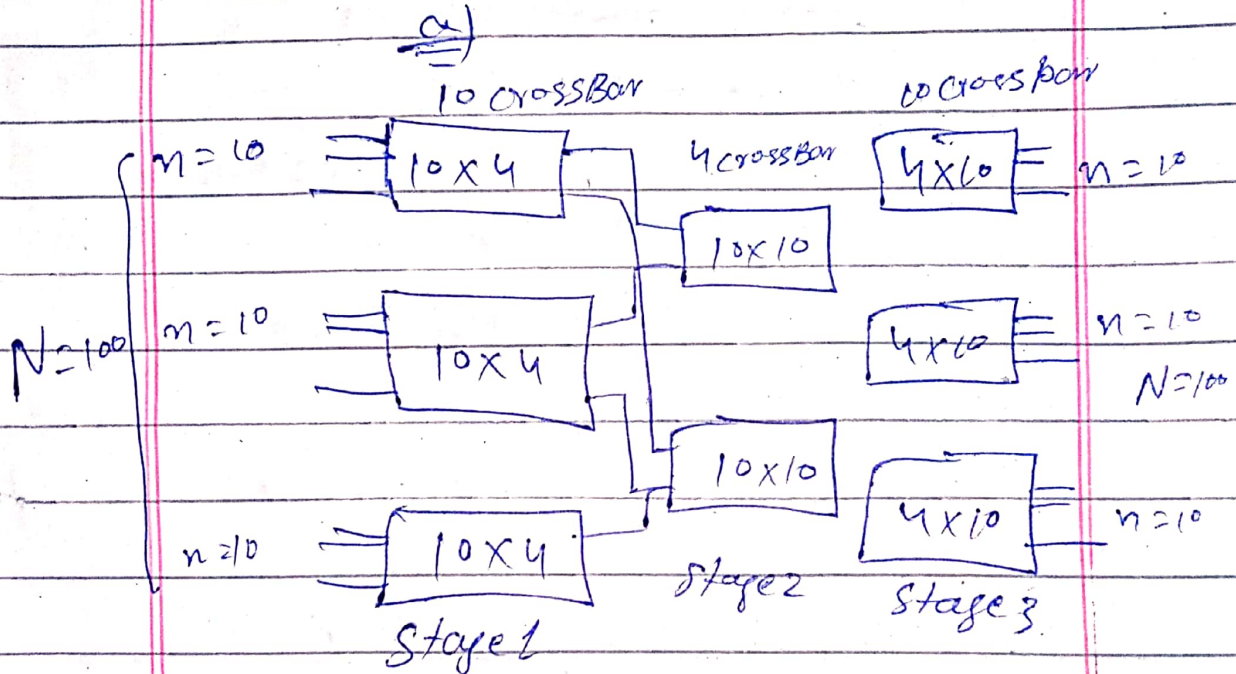 a)
10 CrossBar
10 CrossBar
n = 10
10 X 4
4 CrossBar
4X10
n = 10
10X10
N=100
n = 10
10X4
4X10
n = 10
N=100
10X10
n=10
10X4
4X10
n=10
Stage 1
Stage 2
Stage 3